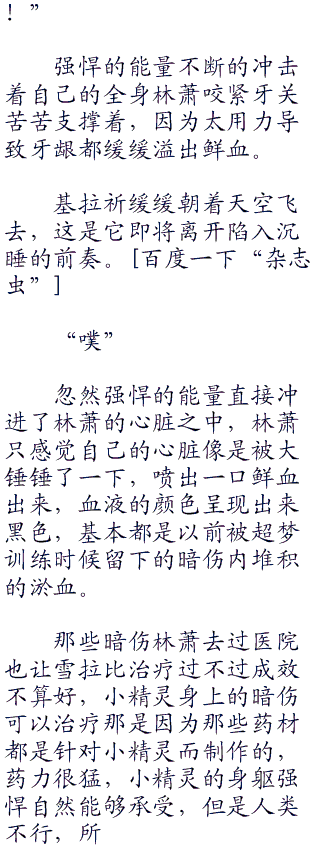 ！”
强悍的能量不断的冲击
着自己的全身林萧咬紧牙关
苦苦支撑着，因为太用力导
致牙龈都缓缓溢出鲜血。
基拉祈缓缓朝着天空飞
去，这是它即将离开陷入沉
睡的前奏。[百度一下“杂志
虫”]
“噗”
忽然强悍的能量直接冲
进了林萧的心脏之中，林萧
只感觉自己的心脏像是被大
锤锤了一下，喷出一口鲜血
出来，血液的颜色呈现出来
黑色，基本都是以前被超梦
训练时候留下的暗伤内堆积
的淤血。
那些暗伤林萧去过医院
也让雪拉比治疗过不过成效
不算好，小精灵身上的暗伤
可以治疗那是因为那些药材
都是针对小精灵而制作的，
药力很猛，小精灵的身躯强
悍自然能够承受，但是人类
不行，所